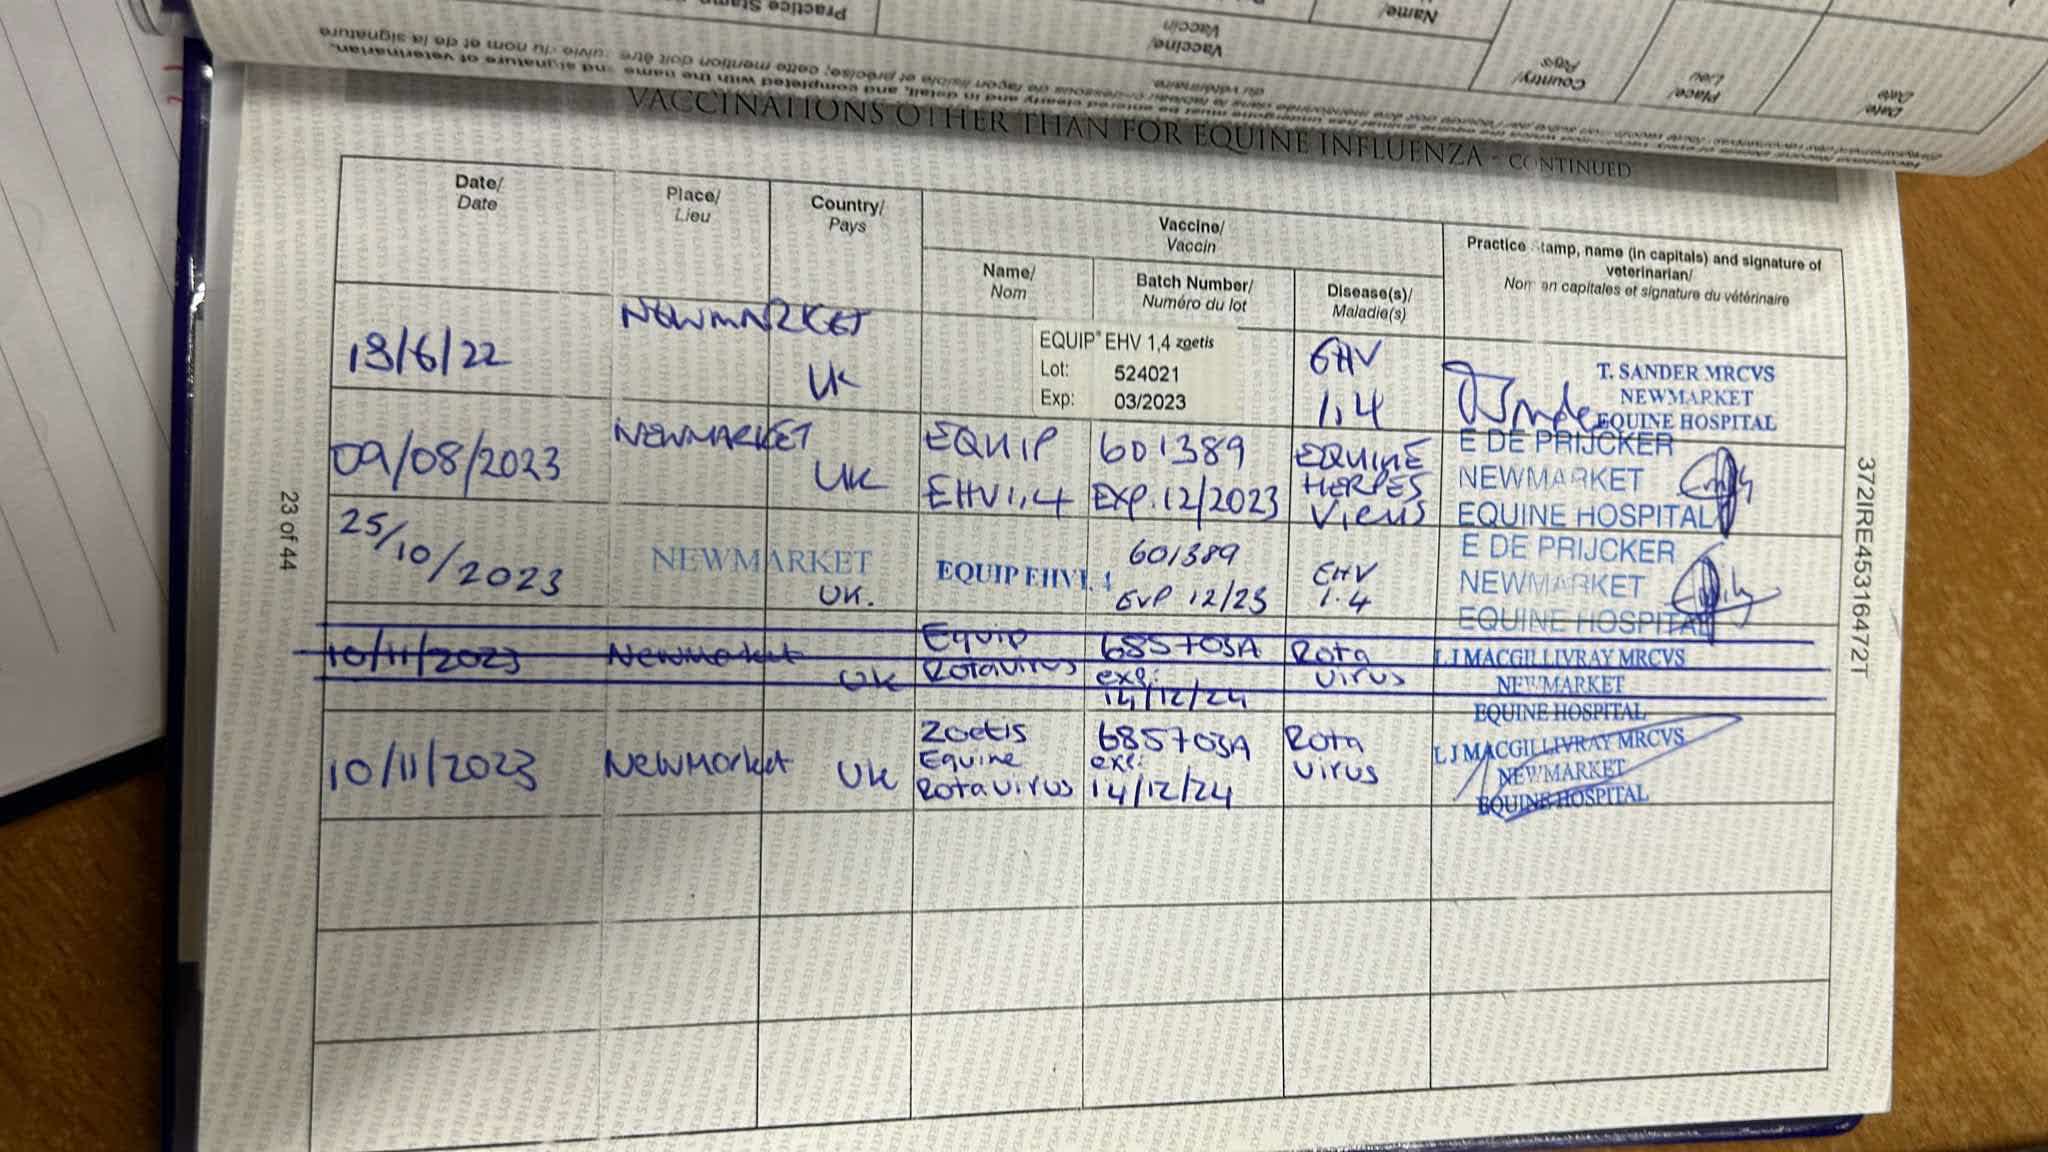 Practice Stamp
Name/
Vaccine/
Vaccin
Country/
Pays
Place/
Lieu
Date/
Date
du vétérinaire.
VACCINATIONS OTHER THAN FOR EQUINE INFLUENZA - CONTINUED
Date/
Date
Place/
Lieu
Country/
Pays
Vaccine/
Vaccin
Name/
Nom
Batch Number/
Numéro du lot
Disease(s)/
Maladie(s)
Practice stamp, name (in capitals) and signature of
veterinarian/
Nom en capitales et signature du vétérinaire
NEWMARKET
UK
EQUIP® EHV 1,4 zoetis
Lot: 524021
Exp: 03/2023
EHV
1,4
T. SANDER MRCVS
NEWMARKET
EQUINE HOSPITAL
09/08/2023
NEWMARKET
UK
EQUIP
EHV1,4
601389
EXP. 12/2023
EQUINE
HERPES
Virus
E DE PRIJCKER
NEWMARKET
EQUINE HOSPITAL
25/10/2023
NEWMARKET
UK.
EQUIP EHV1,4
601389
EXP 12/23
EHV
1.4
E DE PRIJCKER
NEWMARKET
EQUINE HOSPITAL
10/11/2023
Newmarket
UK
Equip
Rotavirus
685703A
exp:
14/12/24
Rota
virus
L J MACGILLIVRAY MRCVS
NEWMARKET
EQUINE HOSPITAL
10/11/2023
Newmarket
UK
Zoetis
Equine
Rotavirus
685703A
exp:
14/12/24
Rota
virus
L J MACGILLIVRAY MRCVS
NEWMARKET
EQUINE HOSPITAL
23 of 44
372IRE45316472T